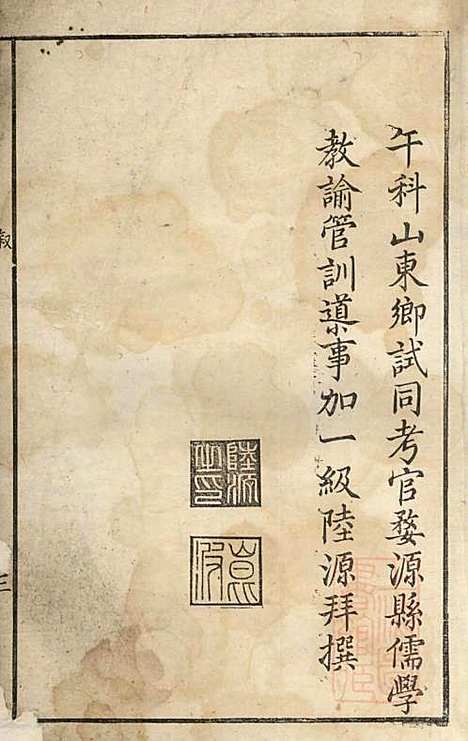 午科山東鄉試同考官婺源縣儒學
教諭管訓導事加一級陸源拜撰
陸源之印
叙
三